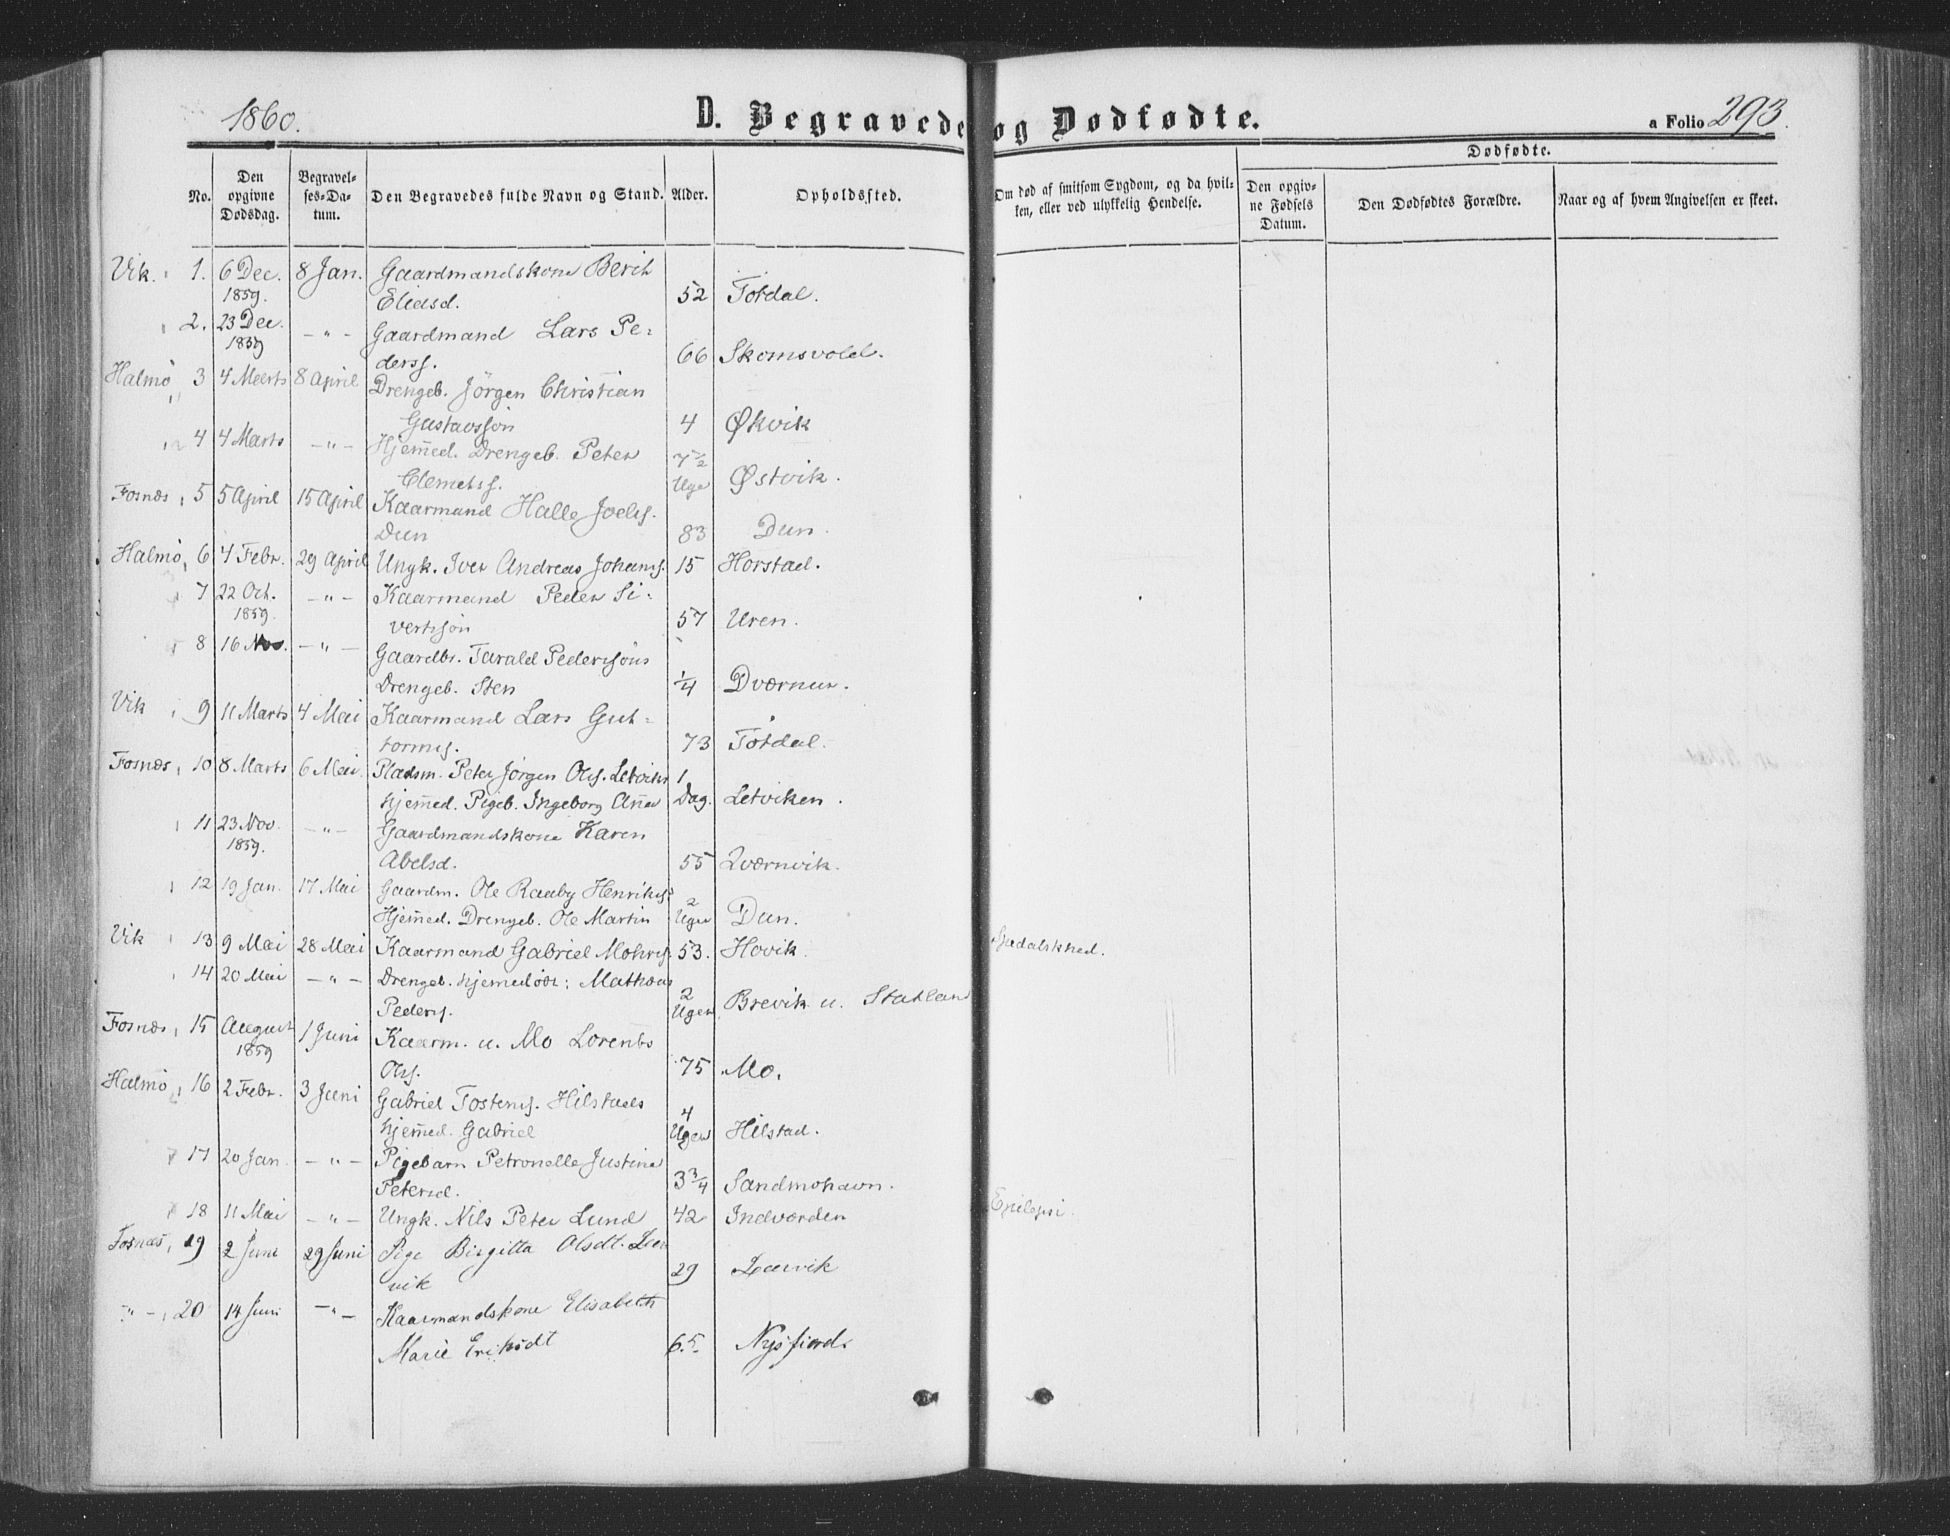 1860.
D. Begravede og Dødfødte.
a Folio 293.
No.
Den opgivne Dødsdag.
Begravelses-Datum.
Den Begravedes fulde Navn og Stand.
Alder.
Opholdssted.
Om død af smitsom Sygdom, og da hvilken, eller ved ulykkelig Hendelse.
Dødfødte.
Den opgivne Fødsels Datum.
Den Dødfødtes Forældre.
Naar og af hvem Angivelsen er skeet.
Vik. 1. 6 Dec. 8 Jan. Gaardmandskone Berit
1859. Eliasd. 52 Totdal.
2. 23 Dec. -"- Gaardmand Lars Pe-
1859 derss. 66 Skomsvold.
Halmø 3 4 Marts 8 April Drengeb. Jörgen Christian
Gustavssön 4 Økvik
4 4 Marts -"- Hjemmed. Drengeb. Peter 7 1/2
Clemetss. Uge Østvik.
Fosnæs 5 5 April 15 April Kaarmand Halle Joels.
Dun 83 Dun.
Halmö 6 4 Febr. 29 April Ungk. Iver Andreas Johans. 15 Horstad.
7 22 Oct. -"- Kaarmand Peder Si-
1859. vertssön 57 Uren.
8 16 Nov. -"- Gaardbr. Tarald Pederssöns
Drengeb. Sten 1/4 Dværnes.
Vik 9 11 Marts 4 Mai Kaarmand Lars Gut-
torms. 73 Totdal.
Fosnæs 10 8 Marts 6 Mai. Pladsm. Peter Jörgen Ols. Letvikens 1
hjemmed. Pigeb. Ingeborg Anne Dag. Letviken.
11 23 Nov. -"- Gaardmandskone Karen
1859. Abelsd. 55 Qværnvik.
12 19 Jan. 17 Mai Gaardm. Ole Raaby Henriks. 2
Hjemmed. Drengeb. Ole Martin Uger Dun.
Vik 13 9 Mai 28 Mai Kaarmand Gabriel Mohrs. 53. Hovik.
14 20 Mai -"- Drengeb. hjemmedöbt: Mathæus 2
Peders. Uger Brevik u. Statland
Fosnæs 15 August 1 Juni Kaarm. u. Mo Lorents
1859 Ols. 75 Mo.
Halmö 16 2 Febr. 3 Juni Gabriel Tostens. Hilstads 4
hjemmed. Gabriel Uger Hilstad.
17 20 Jan. -"- Pigebarn Petronelle Justine
Petersd. 3 3/4 Sandmohavn.
18 11 Mai -"- Ungk. Nils Peter Lund 42 Indværden Epilepsi.
Fosnæs, 19 2 Juni 29 Juni Pige Birgitta Olsdt. Laer
vik 29 Laervik
-"- 20 14 Juni -"- Kaarmandskone Elisabeth
Marie Eriksdt 65 Nysfjord